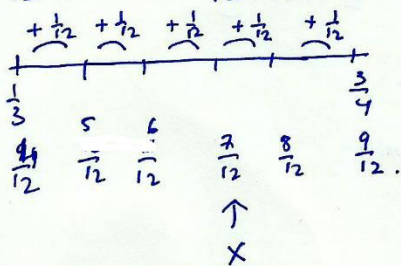 + 1/12 + 1/12 + 1/12 + 1/12 + 1/12
1/3 3/4
4/12 5/12 6/12 7/12 8/12 9/12.
↑
X